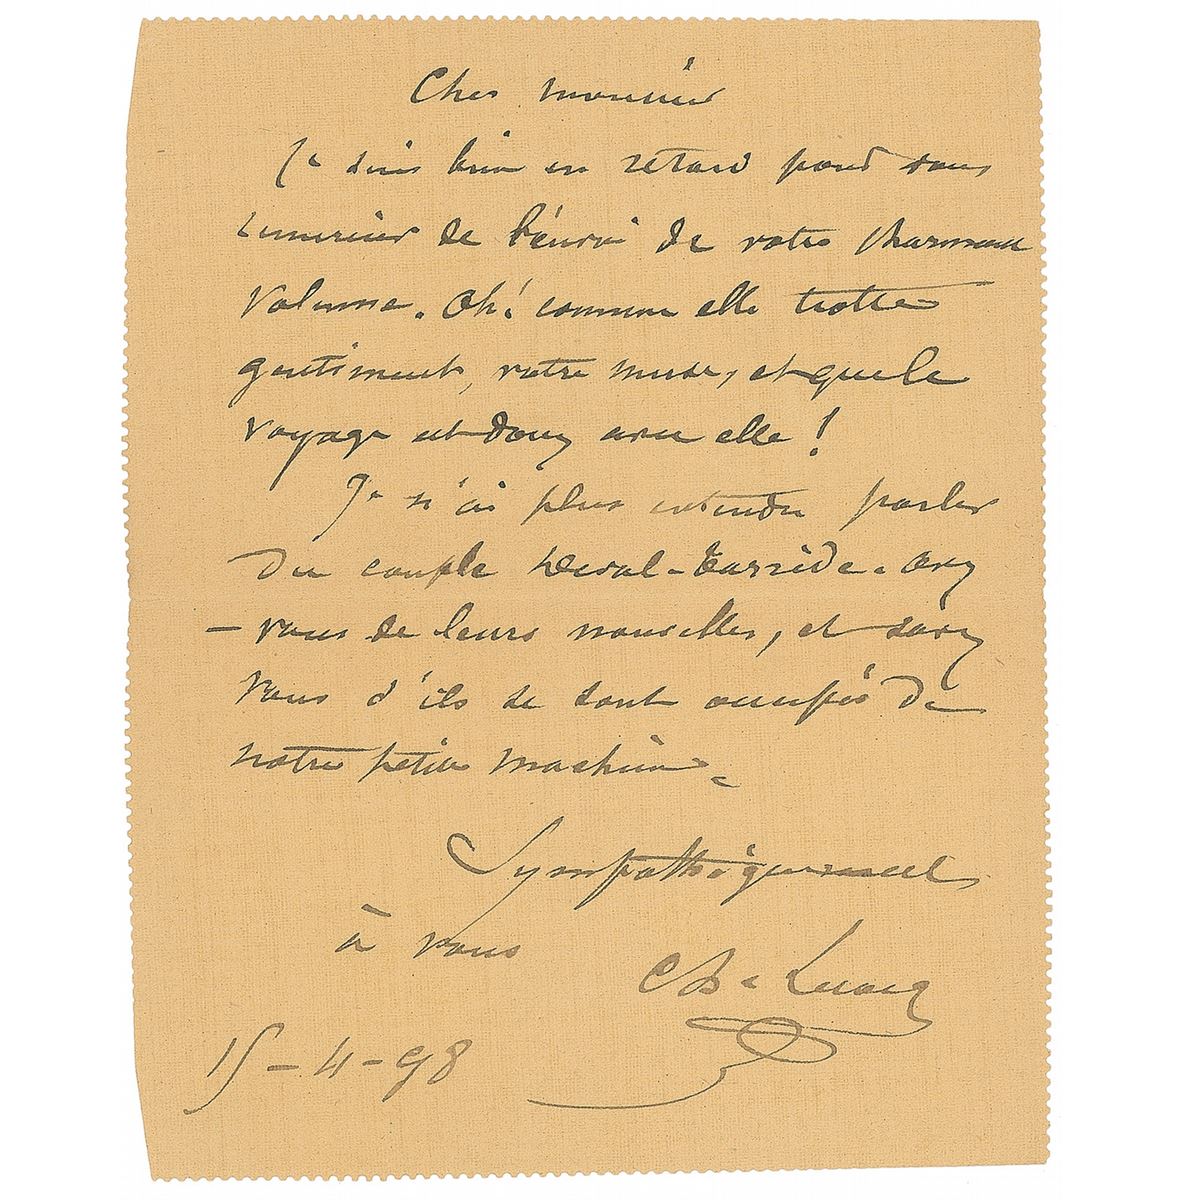 Cher monsieur
Je suis bien en retard pour vous
remercier de l'envoi de votre charmant
volume. Oh! comme elle trotte
gentiment, votre muse, et que le
voyage est doux avec elle!
Je n'ai plus entendu parler
du couple Deval-Tarride. Avez
-vous de leurs nouvelles, et savez
vous s'ils se sont occupés de
notre petite machine.
Sympathiquement
à vous
Ch. Lecocq
15-4-98